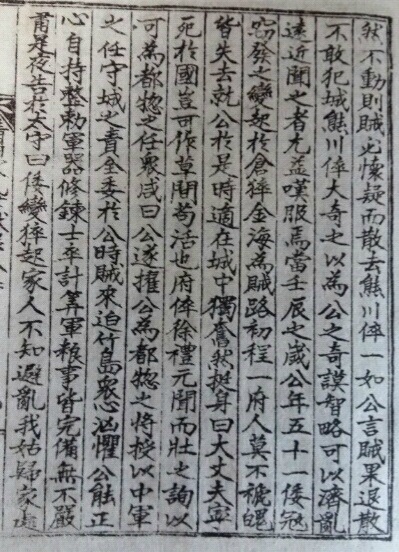 然不動則賊必懷疑而散去熊川倅一如公言賊果退散
不敢犯城熊川倅大奇之以為公之奇謨智略可以濟亂
遠近聞之者尤益嘆服焉當壬辰之歲公年五十一倭寇
忽發之變起於倉猝金海為賊路初程一府人莫不褫魄
皆失去就公於是時適在城中獨奮然挺身曰大丈夫寧
死於國豈可作草間苟活也府倅徐禮元聞而壯之詢以
可為都摠之任衆咸曰公遂擢公為都摠之將授以中軍
之任守城之責全委於公時賊來迫竹島衆心汹懼公能正
心自持整勅軍器修鍊士卒計筭軍粮事皆完備無不嚴
肅是夜告於太守曰倭變猝起家人不知避亂我姑歸家處